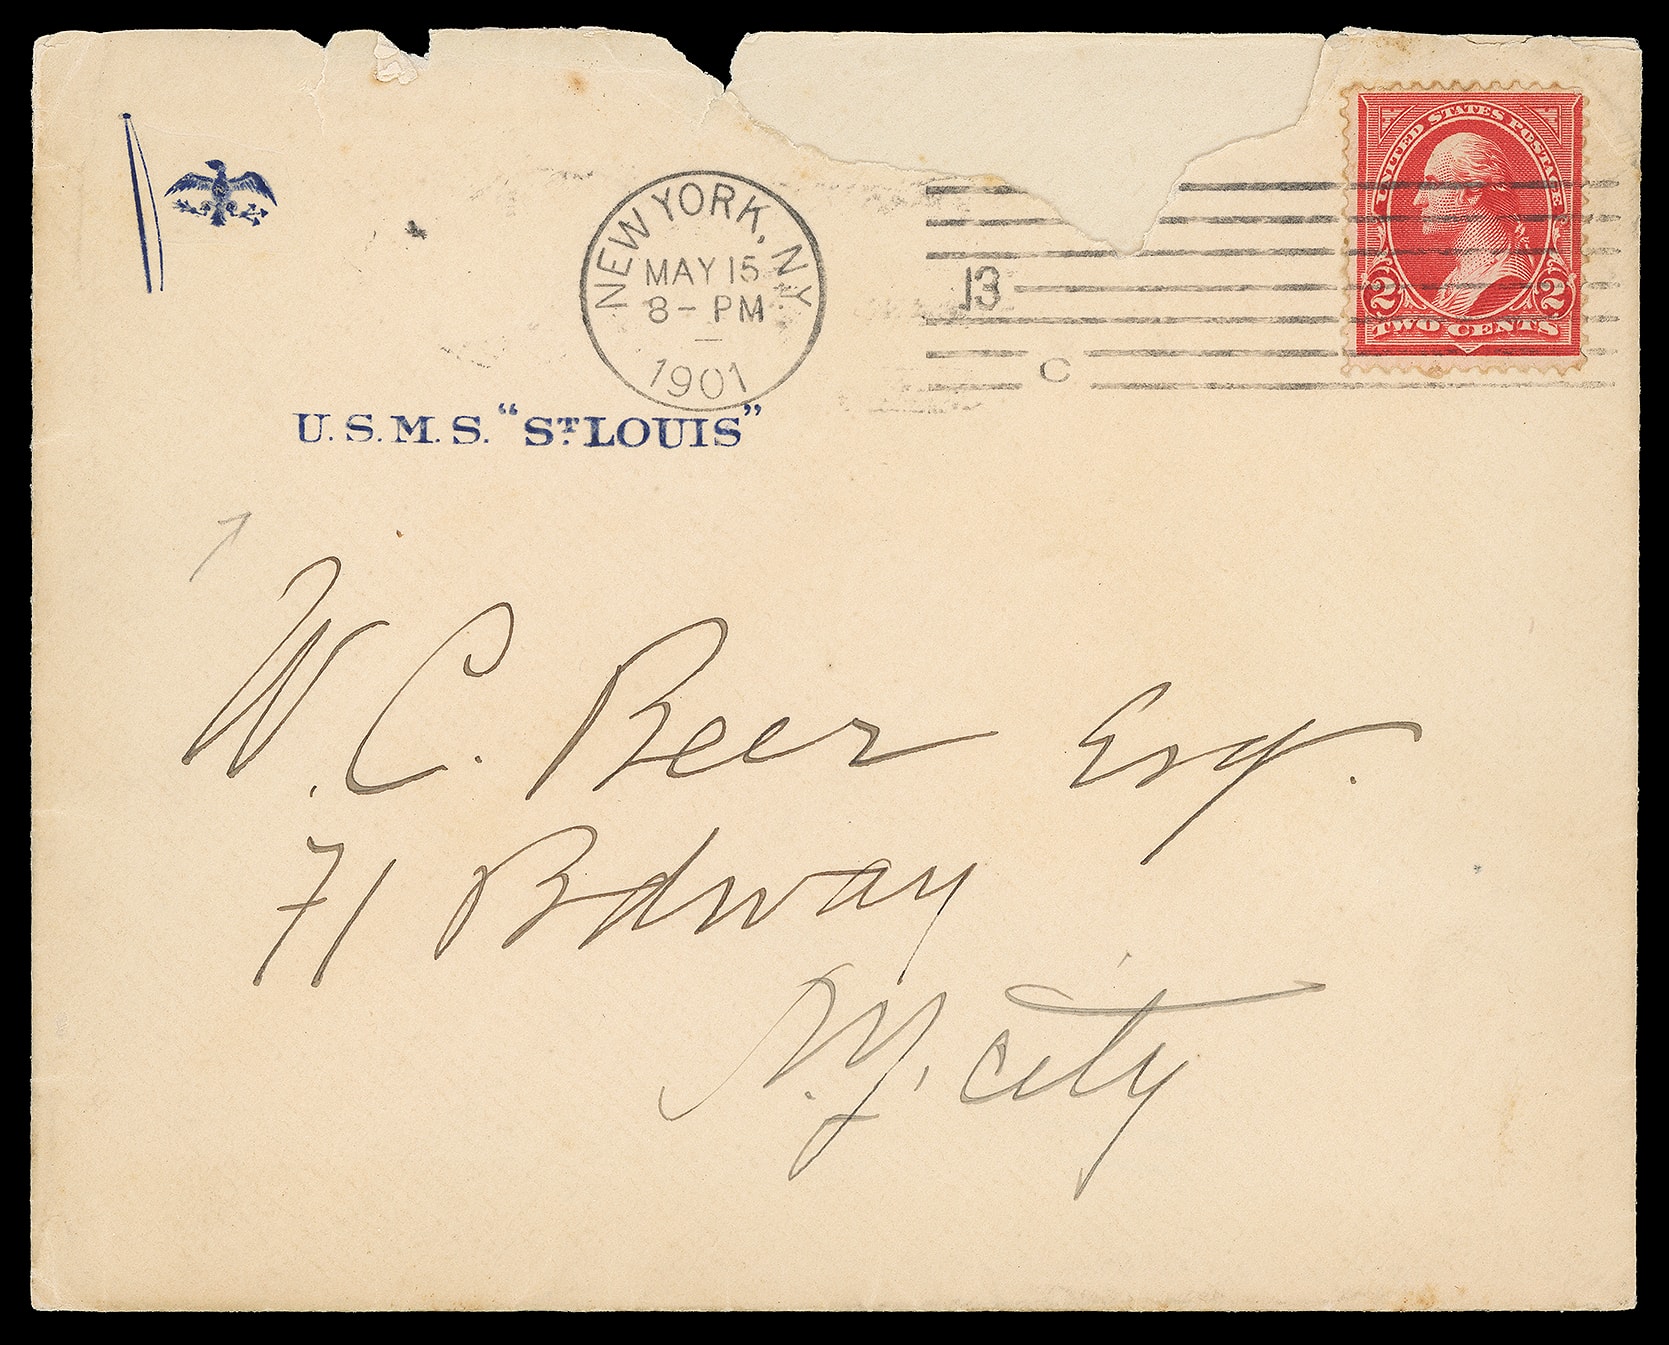 UNITED STATES POSTAGE
2 2
TWO CENTS
NEW YORK, N.Y.
MAY 15
8 - PM
1901
13
C
U.S.M.S. "ST. LOUIS"
W. C. Beer Esq.
71 Bdway
N.Y. city